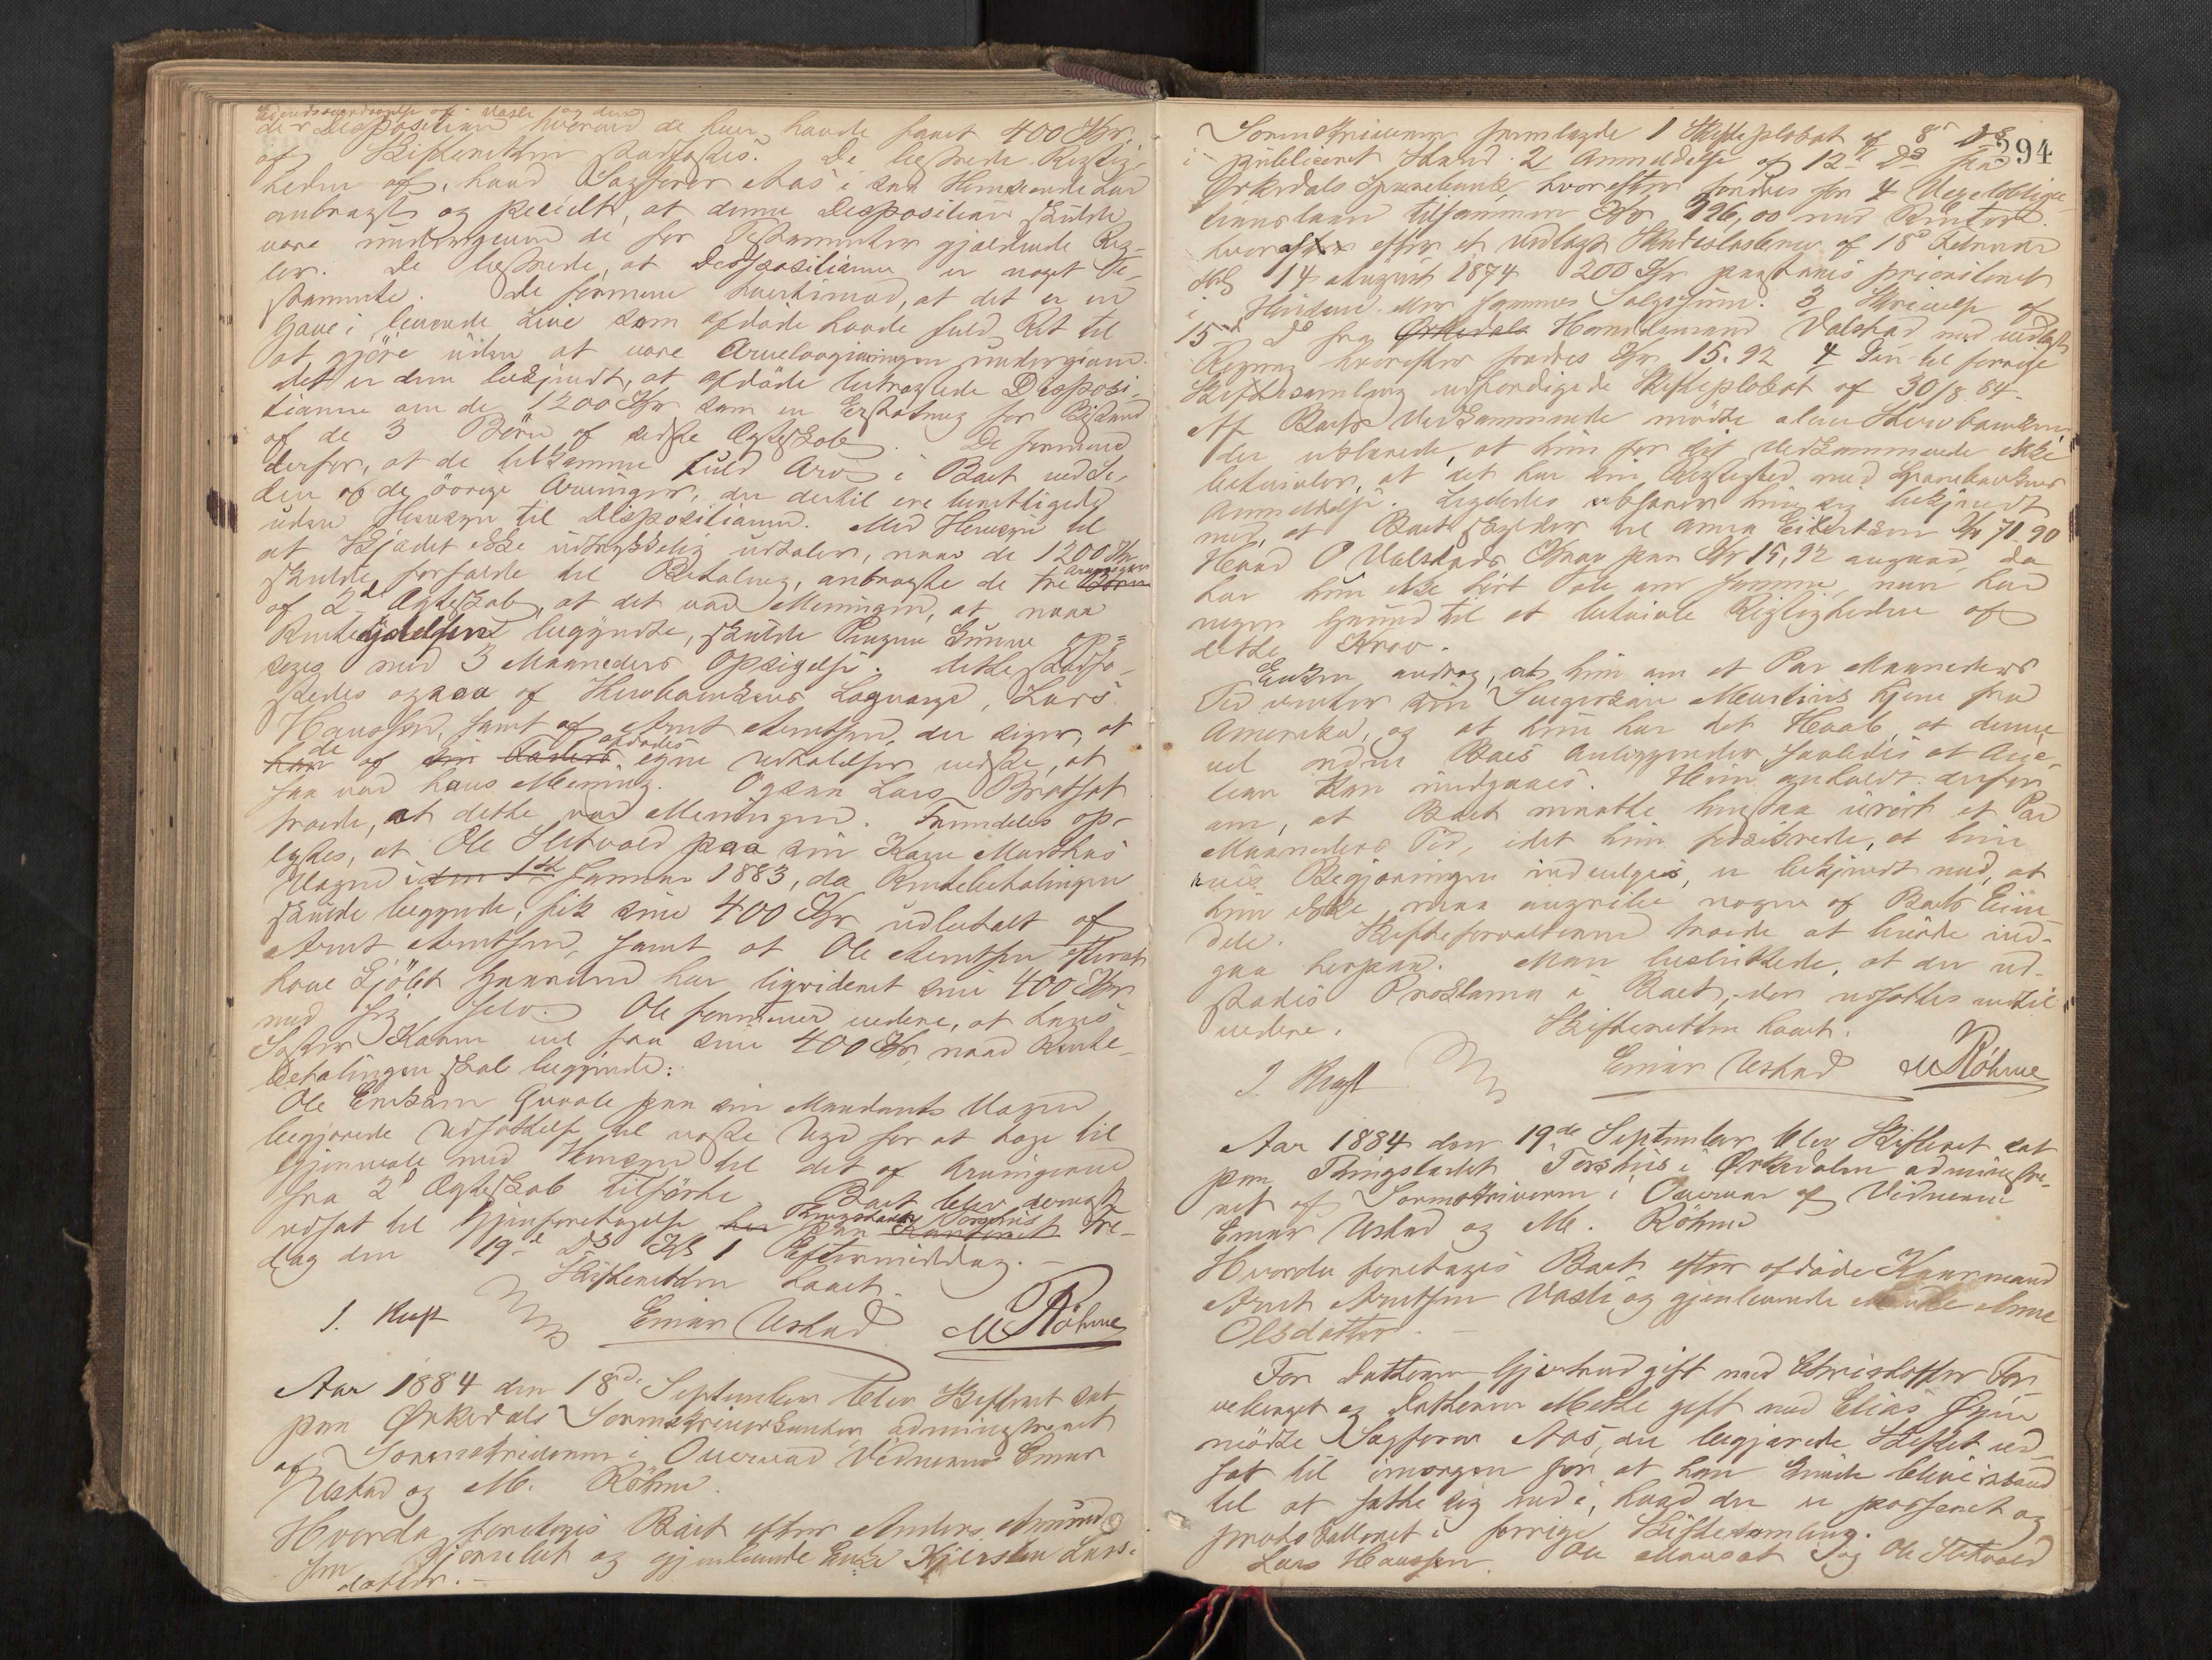 Eiendsoverdragelse af Vasli og den
der Disposition hvorved de hver havde faaet 400 Kr,
af Skifteretten stadfæstes. De bestrede Rigtig-
heden af, hvad Sagfører Aas i saa Henseende har
anbragt og specielt, at denne Disposition skulde
være undergivne de for Testamenter gjældende Reg-
ler. De bestrede, at Dispositionen er noget Te-
stamente. De formene tvertimod, at det er en
Gave i levende Live som afdøde havde fuld Ret til
at gjöre uden at være Arvelovgivningen undergiven
det er dem bekjendt, at afdöde betragtede Disposi-
tionen om de 1200 Kr som en Erstatning for Bistand
af de 3 Börn af sidste Ægteskab. De formene
derfor, at de tilkomme fuld Arv i Boet ved Si-
den af de övrige Arvinger, der dertil ere berettigede
uden Hensyn til Dispositionen. Med Hensyn til
at Skjödet ikke udtrykkelig udtaler, naar de 1200 Kr
skulde forfalde til Betaling, anbragte de tre Arvinger Börn
af 2d Ægteskab, at det var Meningen, at naar
Rentesydelsen begyndte, skulde Pengene kunne op-
siges med 3 Maaneders Opsigelse. Dette stadfæ-
stedes ogsaa af Havbankens Laugværge, Lars
Hansen, samt af Arnt Arntsen, der siger, at
han de af sin Faders afdödes egne Udtalelser vidste, at
saa var hans Mening. Ogsaa Lars Bratset
troede, at dette var Meningen. Fremdeles op-
lystes, at Ole Sletvold paa sin Kone Marthas
Vegne i den 1ste Januar 1883, da Rentebetalingen
skulde begynde, fik sine 400 Kr udbetalt af
Arnt Arntsen, samt at Ole Arntsen efterat
have kjöbt Gaarden har ligvideret sine 400 Kr
med sig selv. Ole formener videre, at hans
Söster Karen vil faa sine 400 Kr, naar Rente-
betalingen skal begynde:
Ole Eriksen Qvaale paa sin Mandants Vegne
begjærede Udsættelse til næste Uge for at tage til
Gjenmæle med Hensyn til det af Arvingerne
fra 2d Ægteskab tilförte. Boet blev dernæst
udsat til Gjenforetagelse her paa Thingstedet Torshus Kontoret Fre-
dag den 19de Ds Kl 1 Eftermiddag.
Skifteretten hævet.
Einar Ustad M Röhme
Aar 1884 den 18de September blev Skifteret sat
paa Örkedals Sorenskriverkontor, administreret
af Sorenskriveren i Overvær Vidnerne Einar
Ustad og M. Röhme.
Hvorda foretoges Boet efter Anders Amund-
sen og gjenlevende Enke Kjersten Lars-
datter.
394
Sorenskriveren fremlagde 1 Skifteplakat af 8de Ds
i publiceret Stand. 2 Anmeldelse af 12te Ds fra
Örkedals Sparebank, hvorefter fordres for 4 Vexelobliga-
tionslaan tilsammen Kr 196,00 med Renter
hvoraf efter et vedlagt Skadeslösbrev af 18de Februar
tbl 14 August 1874 200 Kr paastaaes prioriteret
i samme Salgssum. 3 Skrivelse af
15de Ds fra Örkedals Handelsmand Valstad med vedlagt
Regning hvorefter fordres Kr 15.92 4 Den til forrige
Skiftesamling udfærdigede Skifteplakat af 30/8 84.
Af Boets Vedkommende mödte alene
der erklærede, at hun for sit Vedkommende ikke
betvivler, at det har sin Rigtighed med Sparebankens
Anmeldelse. Ligeledes erklærer hun sig bekjendt
med, at Boet skylder til Anna Eilertsen Kr 71.90
Hvad O Valstads Krav paa Kr 15,92 angaar, da
har hun ikke hört Tale om samme, men har
ingen Grund til at betvivle Rigtigheden af
dette Krav.
Enken androg, at hun om et Par Maaneders
Tid venter sin Svigersön hjem fra
Amerika, og at hun har det Haab, at denne
vil ordne Boets Anliggender saaledes at Auc-
tion kan undgaaes. Hun anholdt derfor
om, at Boet maatte henstaa urört et Par
Maaneders Tid, idet hun forsikrede, at hun
hvis Begjæringen indvilges, er bekjendt med, at
hun ikke maa angribe nogen af Boets Eien-
dele. Skifteforvalteren troede at burde ind-
gaa herpaa. Man besluttede, at der ud-
stædes Proklama i Boet, der udsattes indtil
videre. Skifteretten hævet.
Einar Ustad M Röhme
Aar 1884 den 19de September blev Skifteret sat
paa Thingstedet Torshus i Örkedalen administre-
ret af Sorenskriveren i Overvær af Vidnerne
Einar Ustad og M. Röhme
Hvorda foretoges Boet efter afdöde Kaarmand
Arnt Arntsen Vasli og gjenlevende Enke Anne
Olsdatter.
For Datteren Gjertrud gift med Christoffer
og Datteren Mette gift med Elias
mödte Sagförer Aas, der begjærede Skiftet ud-
sat til imorgen for at han kunde blive istand
til at sætte sig ind i, hvad der er passeret og
protokolleret i forrige Skiftesamling.
Lars Hanssen, Ole og Ole Sletvold